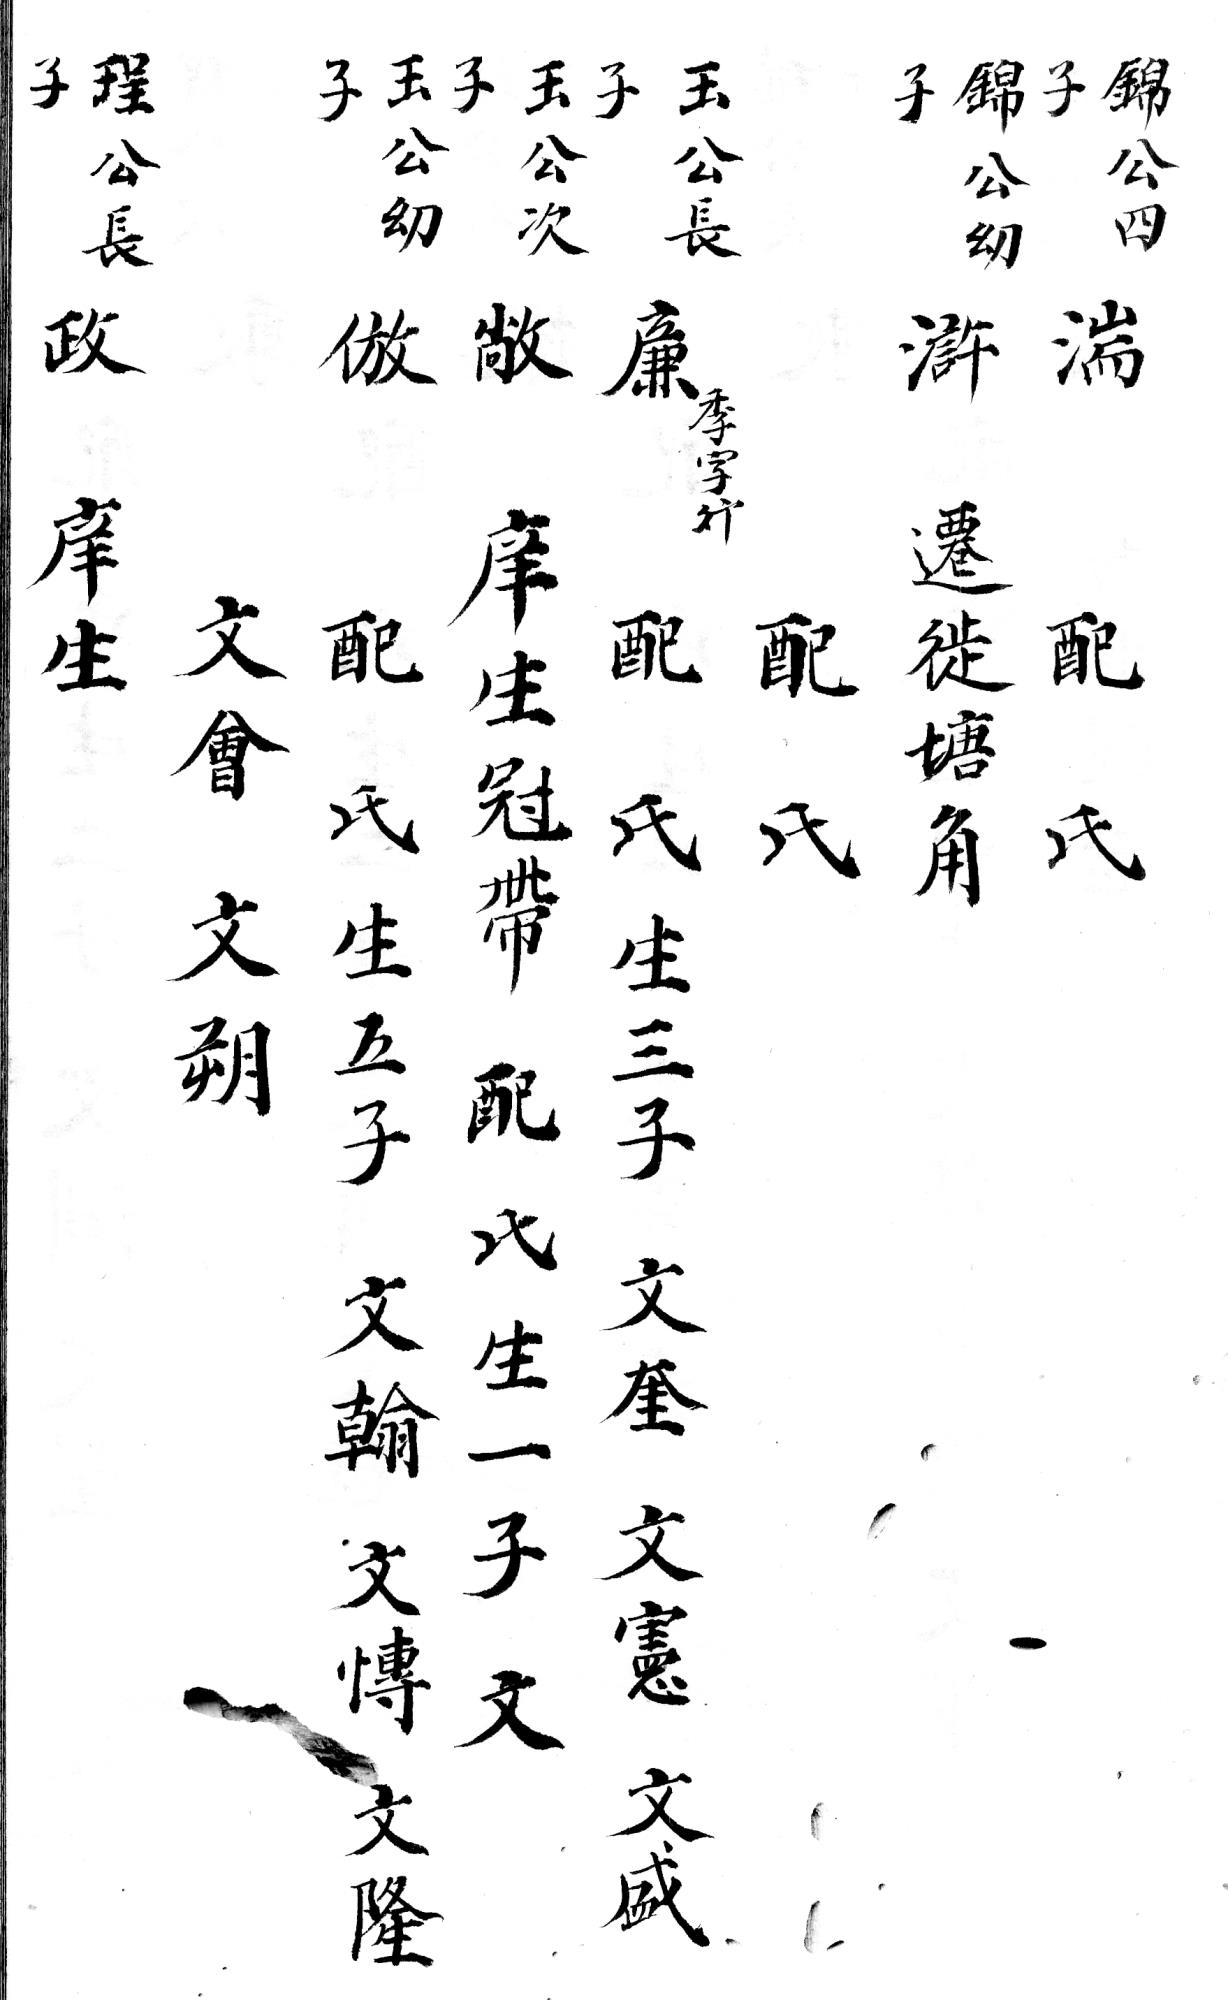 錦公四子 湍 配 氏
錦公幼子 滸 遷徙塘角
配 氏
玉公長子 廉 季字行 配 氏生三子 文奎 文憲 文盛
玉公次子 敞 庠生冠帶 配 氏生一子 文
玉公幼子 倣 配 氏生五子 文翰 文愽 文隆
文會 文朔
珵公長子 政 庠生